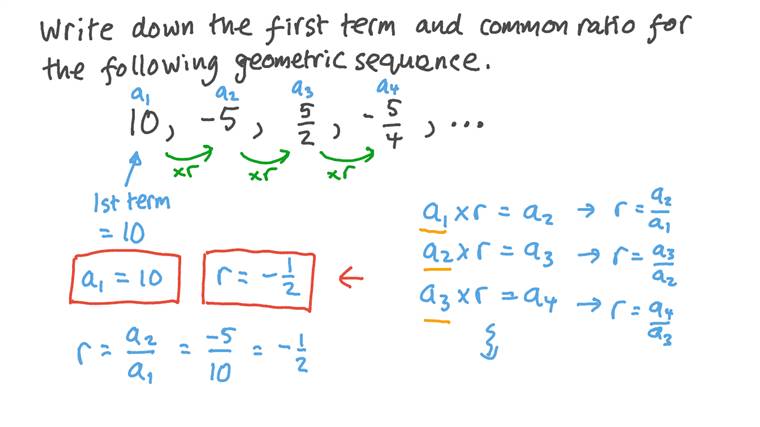 Write down the first term and common ratio for
the following geometric sequence.
a₁ a₂ a₃ a₄
10, -5, 5/2, -5/4, ...
xr xr xr
1st term
= 10
a₁ = 10
r = -1/2 ←
r = a₂/a₁ = -5/10 = -1/2
a₁ xr = a₂ → r = a₂/a₁
a₂ xr = a₃ → r = a₃/a₂
a₃ xr = a₄ → r = a₄/a₃